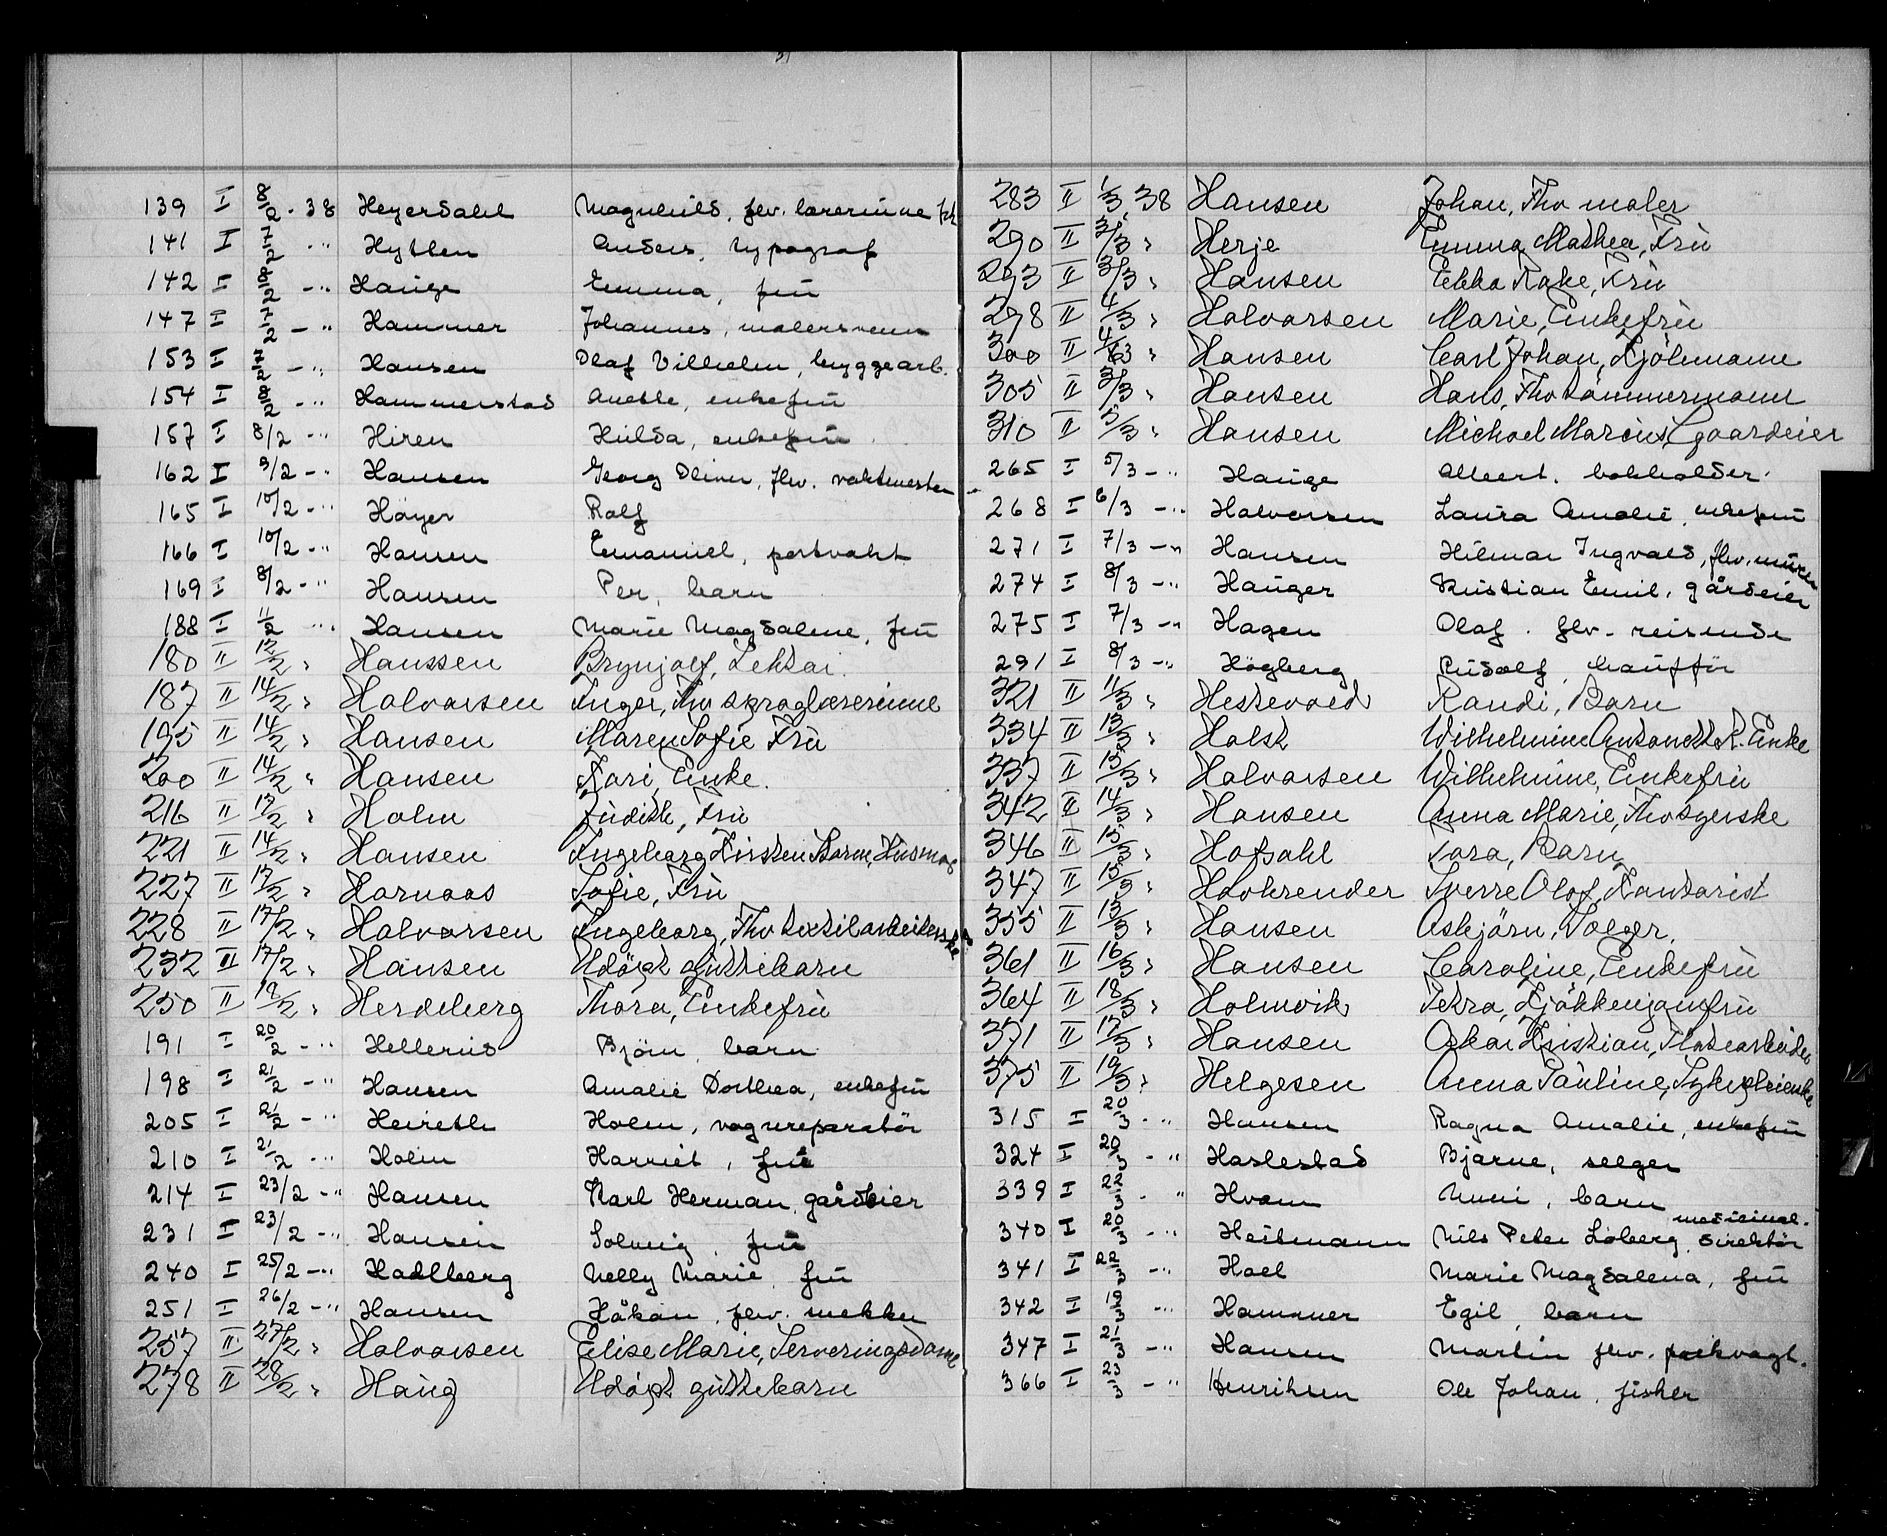 139 I 8/2 - 38 Heyerdahl Magnhild, flv. lærerinne frk
141 I 7/2 - " Hytten Anders, typograf
142 I 8/2 - " Hauge Emma, frü
147 I 7/2 - " Hammer Johannes, malersvenn
153 I 7/2 - " Hansen Olaf Vilhelm, bryggearb.
154 I 8/2 - " Hammerstad Anette, enkefrü
157 I 8/2 - " Hiren Hulda, enkefrü
162 I 9/2 - " Hansen Georg Oliver, flv. vaktmester
165 I 10/2 - " Høyer Rolf
166 I 10/2 - " Hansen Emanuel, portvakt
169 I 8/2 - " Hansen Per, barn
188 I 11/2 " Hansen Marie Magdalene, frü
180 II 12/2 " Hanssen Brynjolf, Lektor
187 II 14/2 " Halvorsen Inger, Fhv språglærerinne
195 II 14/2 " Hansen Maren Sofie Frü
200 II 14/2 " Hansen Kari, Enke.
216 II 17/2 " Holm Judith, Frü
221 II 14/2 " Hansen Ingeborg Kirsten
227 II 17/2 " Harnaas Sofie, Frü
228 II 17/2 " Halvorsen Ingeborg, Fhv textilarbeiderske
232 II 17/2 " Hansen Udöpt güttebarn
250 II 19/2 " Herdeberg Thora, Enkefrü
191 I 20/2 - " Hellerud Björn, barn
198 I 21/2 - " Hansen Amalie Dorthea, enkefrü
205 I 21/2 - " Heireth Holm, vognreparatör
210 I 21/2 - " Holm Harriet, frü
214 I 23/2 - " Hansen Karl Herman, gårdeier
231 I 23/2 - " Hansen Solveig, frü
240 I 25/2 - " Hadlberg Nelly Marie, frü
251 I 26/2 - " Hansen Håkon, flv. snekker
257 II 27/2 " Halvorsen Elise Marie, Serveringsdame
278 II 28/2 " Haug Udöpt güttebarn
283 II 1/3 38 Hansen Johan, Fhv maler
290 II 2/3 " Herje Emma Mathea, Frü
293 II 3/3 " Hansen Ebba Rake, Frü
298 II 4/3 " Halvorsen Marie, Enkefrü
300 II 4/3 " Hansen Carl Johan, Kjöbmann
305 II 3/3 " Hansen Hans, Fhv tömmermann
310 II 5/3 " Hansen Michael Marcius, Gaardeier
265 I 5/3 - " Hauge Albert, bokholder.
268 I 6/3 - " Halvorsen Laura Amalie, enkefrü
271 I 7/3 - " Hansen Hilmar Ingvald, flv. murer
274 I 8/3 - " Hauger Kristian Emil, gårdeier
275 I 7/3 - " Hagen Olaf, flv. reisende
291 I 8/3 - " Högberg Rudolf, chauffür
321 II 11/3 " Hessevold Randi, Barn
334 II 13/3 " Holst Wilhelmine Antonette R. Enke
337 II 13/3 " Halvorsen Wilhelmine, Enkefrü
342 II 14/3 " Hansen Anna Marie, Fhv syerske
346 II 15/3 " Hofdahl Tora, Barn
347 II 15/3 " Sverre Olof, Kontorist
355 II 15/3 " Hansen Asbjörn, Selger.
361 II 16/3 " Hansen Caroline, Enkefrü
364 II 18/3 " Holmvik Petra, Kjökkenjomfrü
371 II 17/3 " Hansen Oskar Kristian,
375 II 19/3 " Helgesen Anna Pauline, Sykepleierske
315 I 20/3 - " Hansen Ragna Amalie, enkefrü
324 I 20/3 - " Haslestad Bjarne, selger
339 I 22/3 - " Hvam Unni, barn
340 I 20/3 - " Heitmann Nils Peter Loberg, medicinal-direktör
341 I 22/3 - " Hoel Marie Magdalena, frü
342 I 19/3 - " Hammer Egil, barn
347 I 21/3 - " Hansen Martin flv. parkvagt.
366 I 23/3 - " Henriksen Ole Johan, fisker